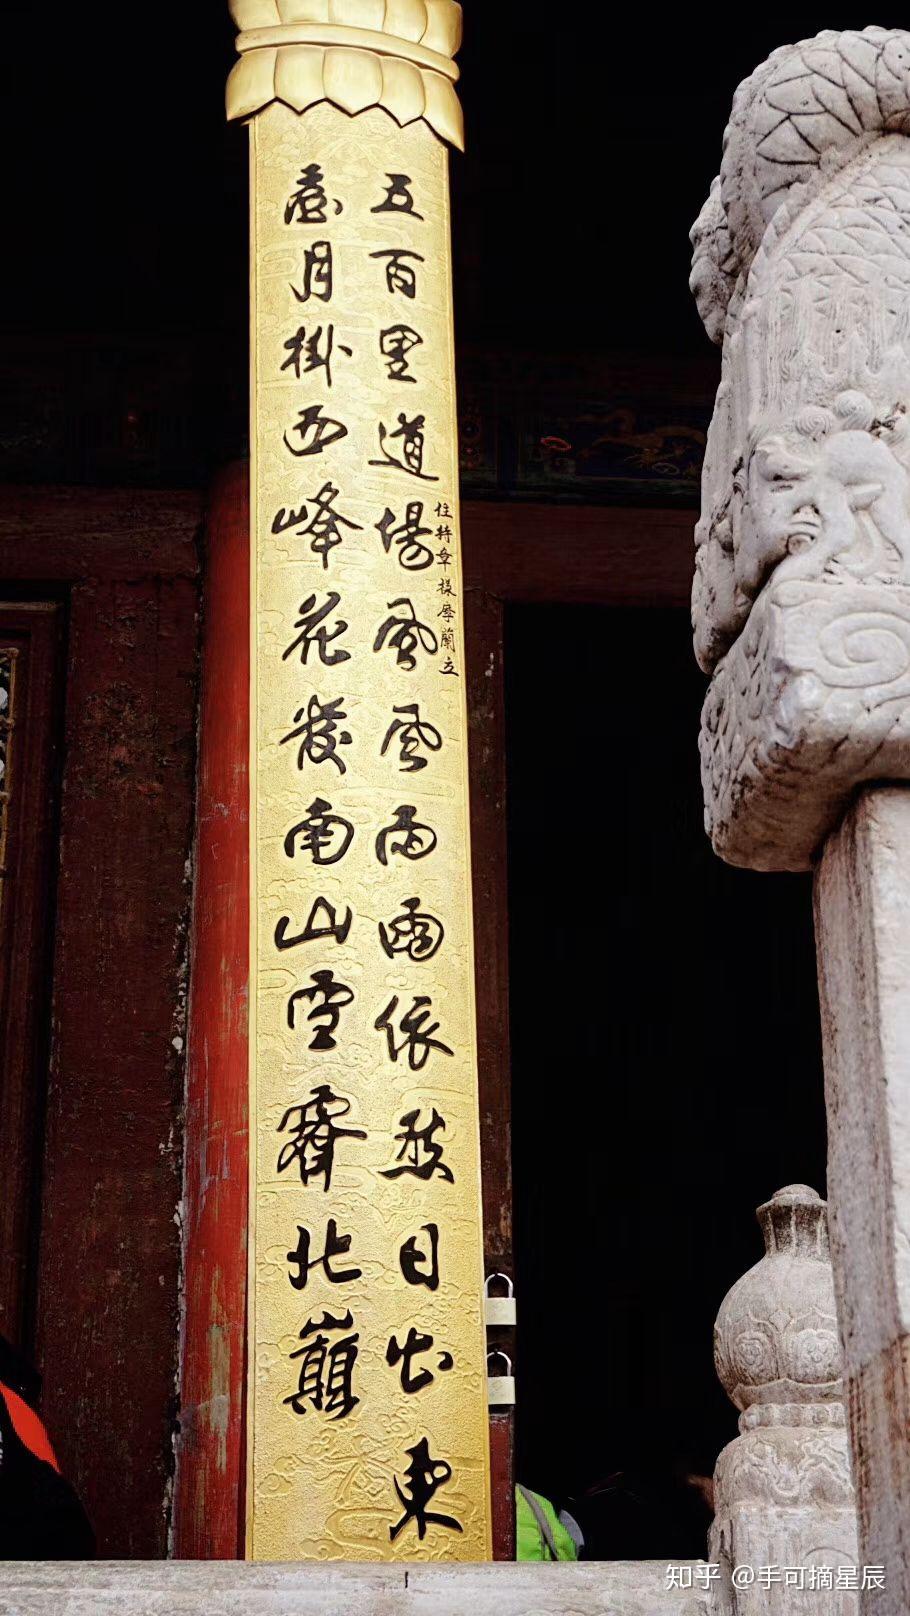 五百里道場風風雨雨依然日出東
臺月掛西峰花發南山雪霽北巔
住持章樣摩蘭立
知乎 @手可摘星辰